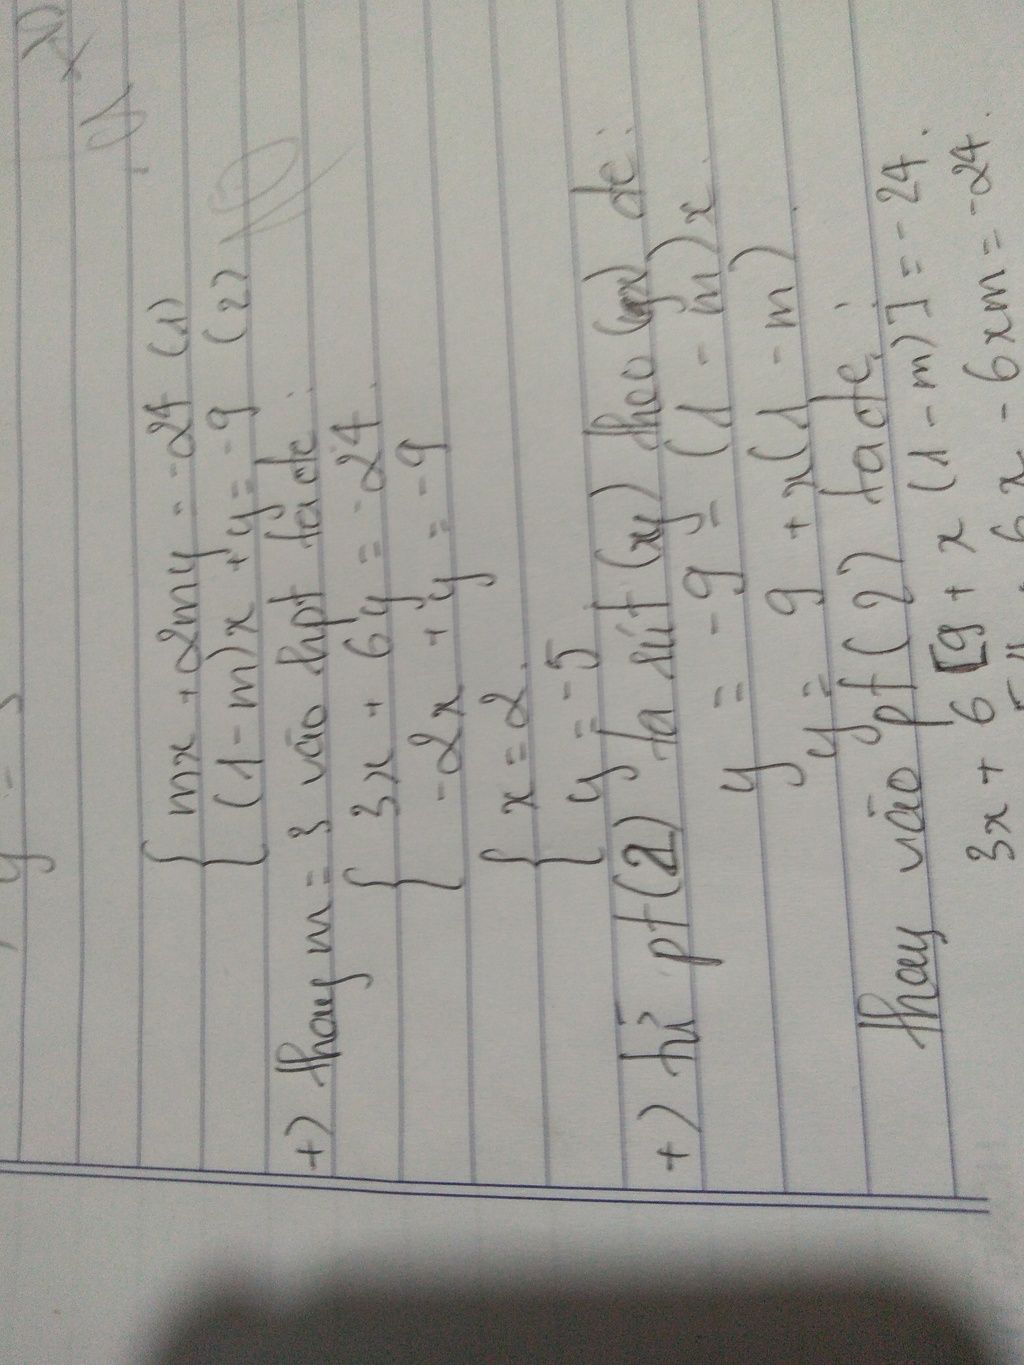 mx + 2my = -24 (1)
(1-m)x + y = -9 (2)
+) thay m = 3 vào hpt ta đc
3x + 6y = -24
-2x + y = -9
x = 2
y = -5
+) từ pt (2) ta rút (xy) theo đc:
y = -9 - (1 - m)x
y = 9 + x(1 - m)
thay vào pt (2) ta đc
3x + 6[9 + x(1 - m)] = -24.
6x - 6xm = -24.